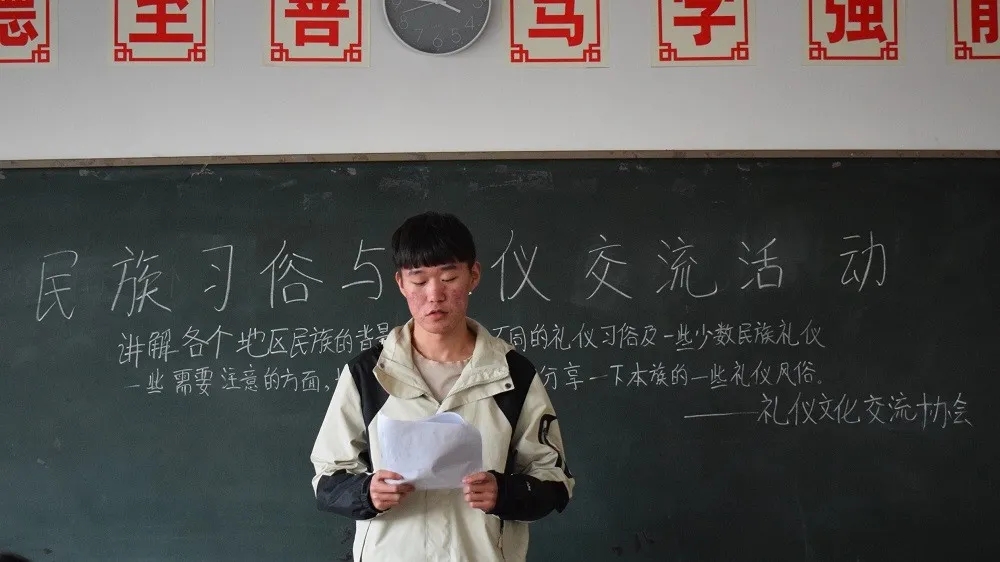 德 至 善 笃 学 强
民族习俗与 仪交流活动
讲解各个地区民族的背景 同的礼仪习俗及一些少数民族礼仪
一些需要注意的方面, 分享一下本族的一些礼仪风俗。
——礼仪文化交流协会